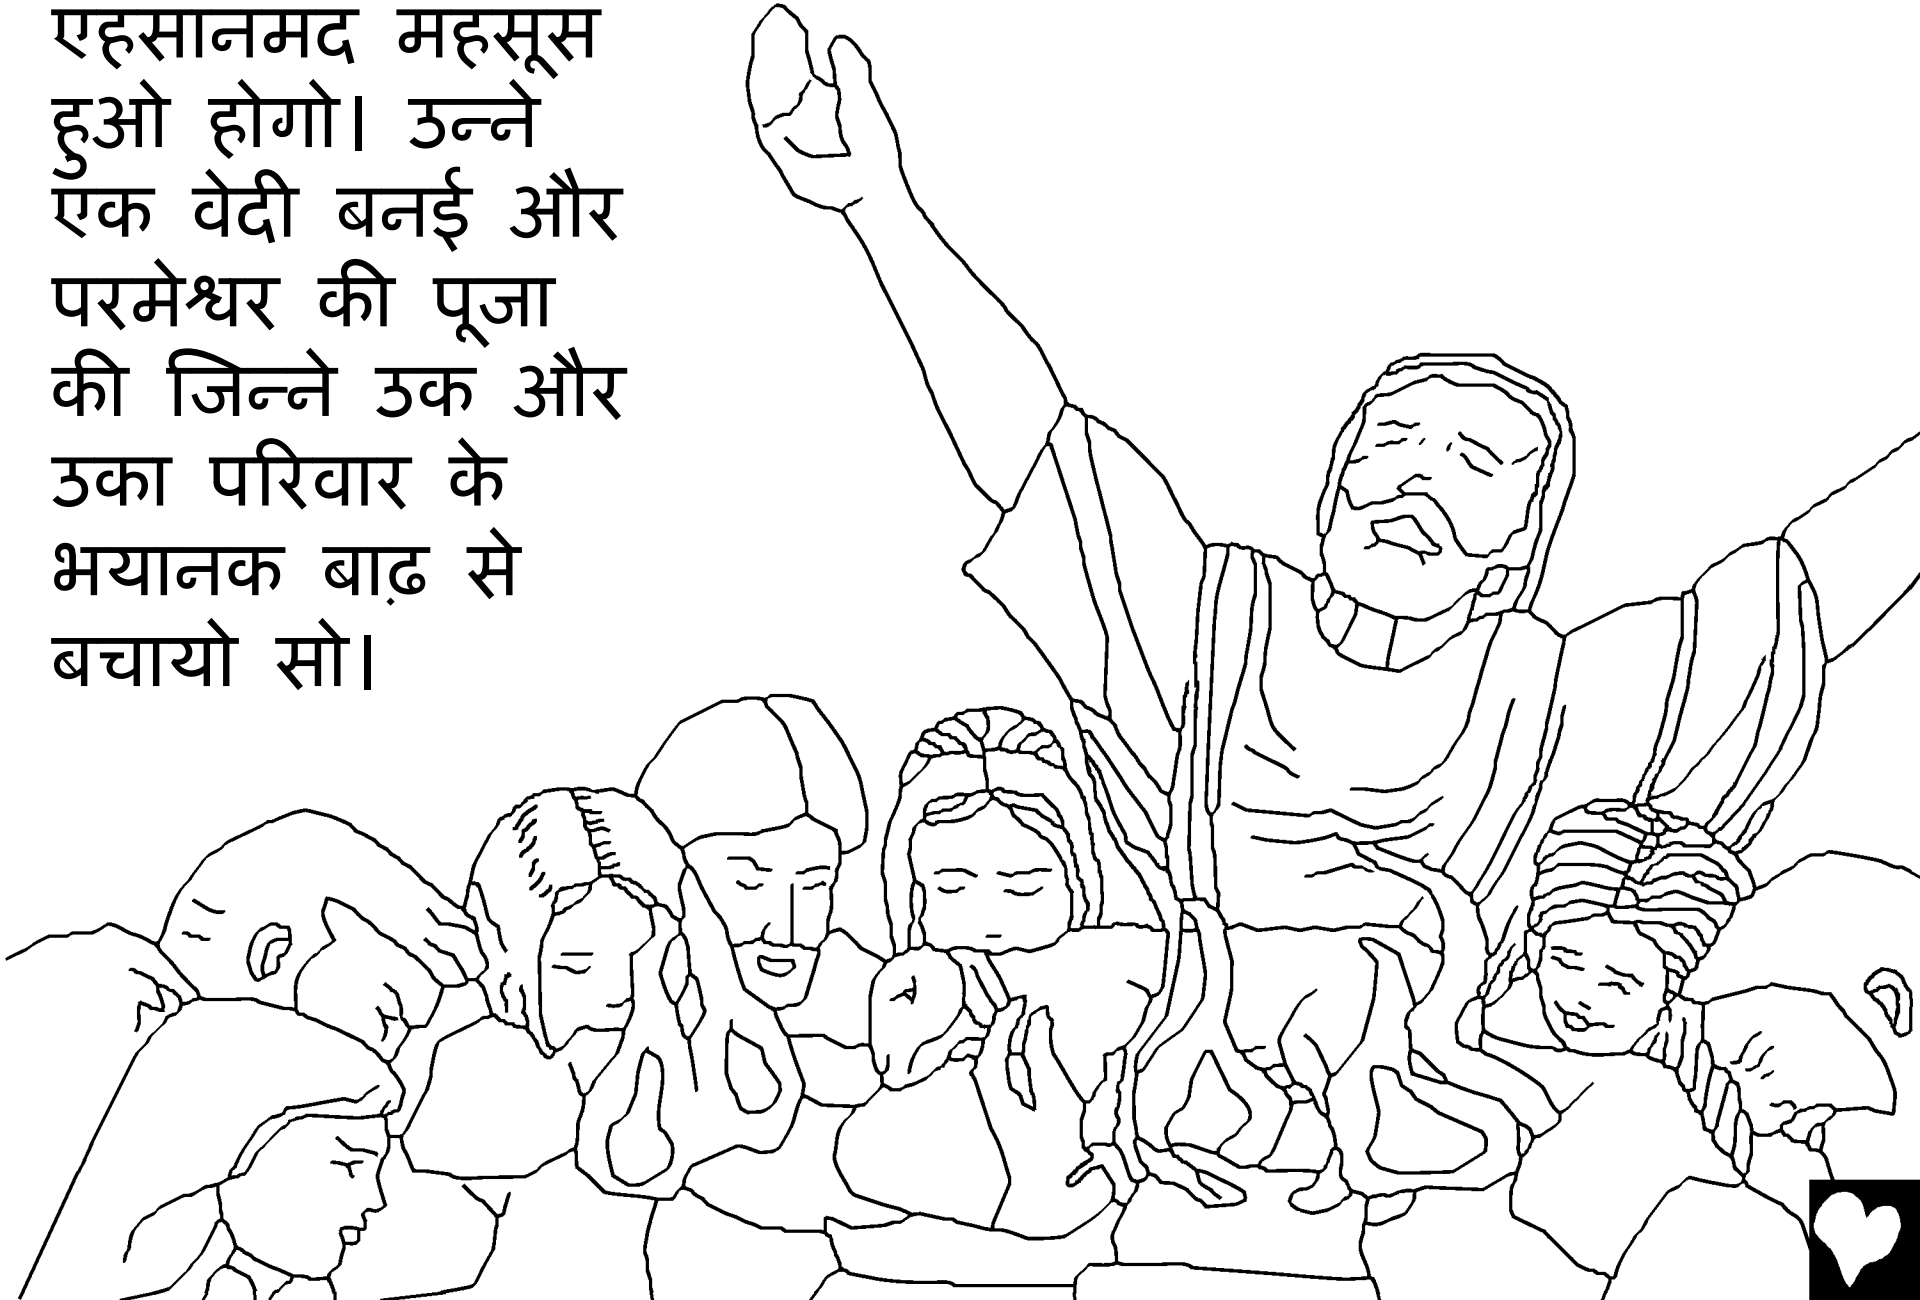 एहसानमद महसूस
हुओ होगो। उन्ने
एक वेदी बनई और
परमेश्वर की पूजा
की जिन्ने उक और
उका परिवार के
भयानक बाढ़ से
बचायो सो।